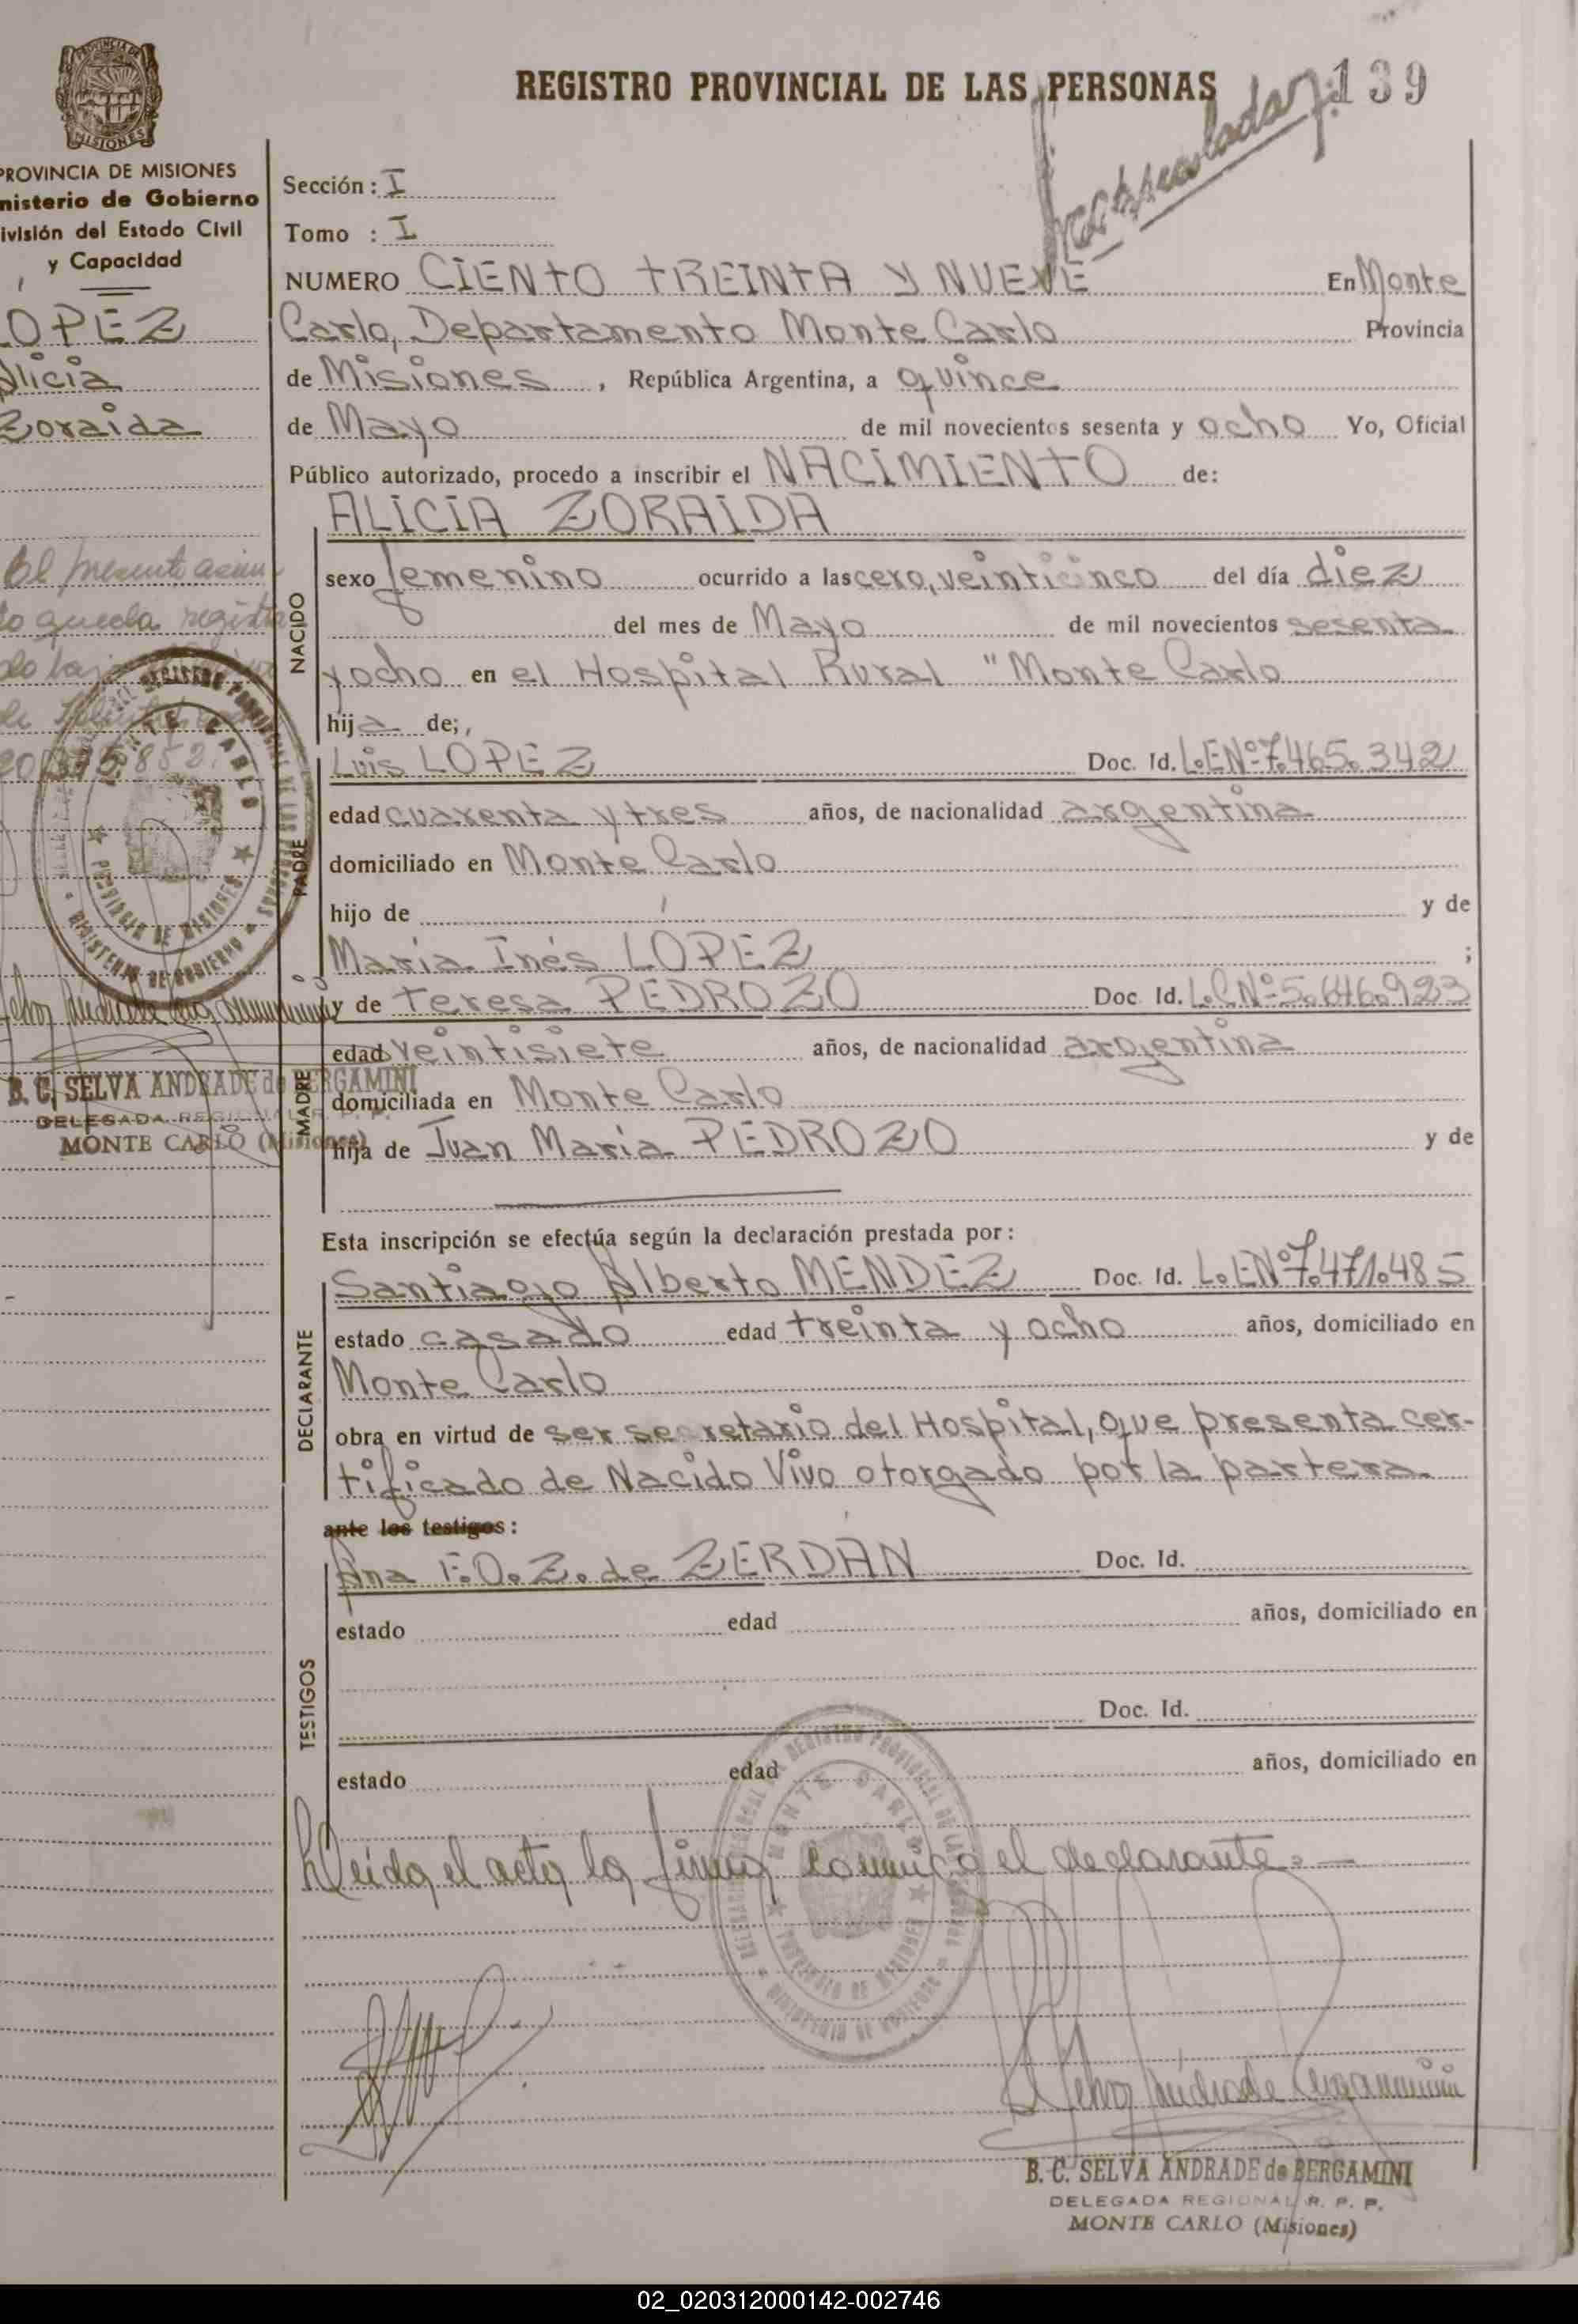 REGISTRO PROVINCIAL DE LAS PERSONAS
139
MISIONES
PROVINCIA DE MISIONES
nisterio de Gobierno
ivisión del Estado Civil
y Capacidad
LOPEZ
Alicia
Zoraida
El presente asien
to queda registra
do bajo
Sección: I
Tomo : I
NUMERO CIENTO TREINTA Y NUEVE En Monte
Carlo, Departamento Monte Carlo Provincia
de Misiones, República Argentina, a quince
de Mayo de mil novecientos sesenta y ocho Yo, Oficial
Público autorizado, procedo a inscribir el NACIMIENTO de:
ALICIA ZORAIDA
NACIDO
sexo femenino ocurrido a las cero, veinticinco del día diez
del mes de Mayo de mil novecientos sesenta
y ocho en el Hospital Rural "Monte Carlo
hija de;,
PADRE
Luis LOPEZ Doc. Id. L.E.Nº 7.465.342
edad cuarenta y tres años, de nacionalidad argentina
domiciliado en Monte Carlo
hijo de y de
María Inés LOPEZ ;
MADRE
y de Teresa PEDROZO Doc Id. L.C.Nº 5.646.923
edad veintisiete años, de nacionalidad argentina
domiciliada en Monte Carlo
hija de Juan María PEDROZO y de
B. C. SELVA ANDRADE de BERGAMINI
DELEGADA REGIONAL R. P. P.
MONTE CARLO (Misiones)
Esta inscripción se efectúa según la declaración prestada por:
DECLARANTE
Santiago Alberto MENDEZ Doc. Id. L.E.Nº 7.471.485
estado casado edad treinta y ocho años, domiciliado en
Monte Carlo
obra en virtud de ser secretario del Hospital, que presenta cer-
tificado de Nacido Vivo otorgado por la partera
ante los testigos:
TESTIGOS
Ana F.O.Z. de ZERDAN Doc. Id.
estado edad años, domiciliado en
Doc. Id.
estado edad años, domiciliado en
Leída el acta la firma conmigo el declarante.—
B. C. SELVA ANDRADE de BERGAMINI
DELEGADA REGIONAL R. P. P.
MONTE CARLO (Misiones)
02_020312000142-002746